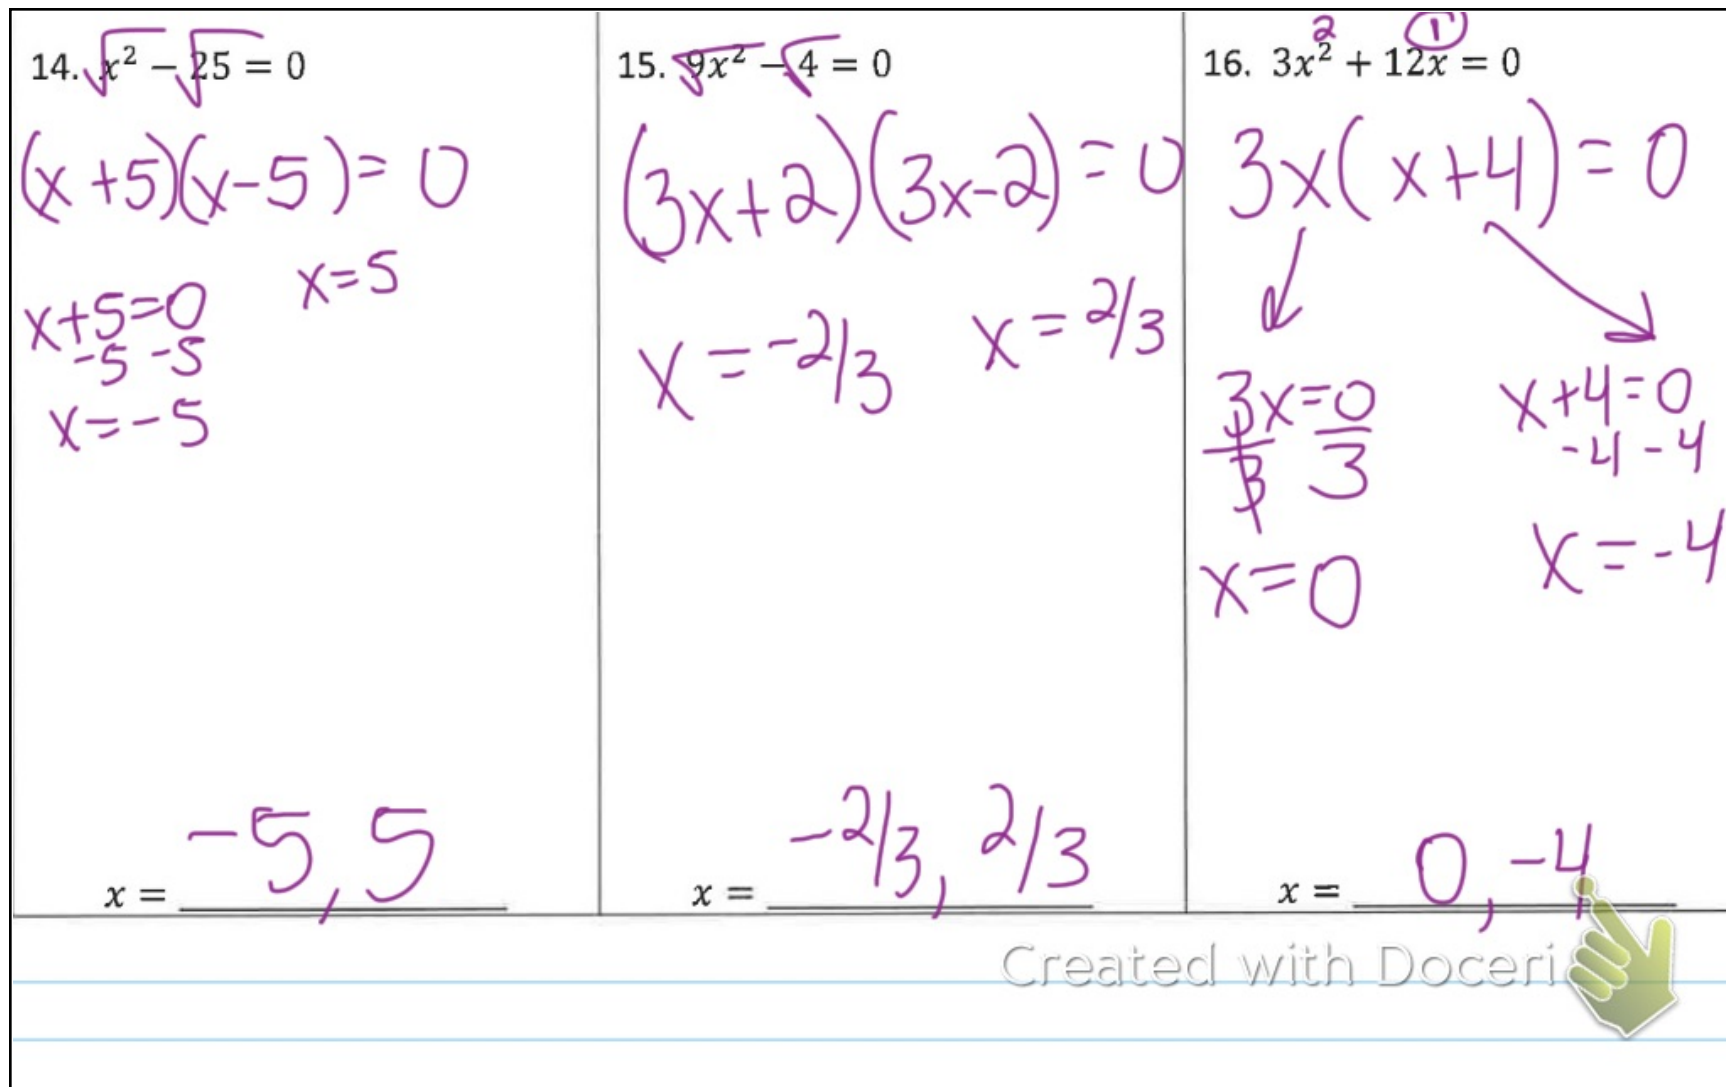 14. √x² − √25 = 0
(x+5)(x-5) = 0
x+5=0
-5 -5
x=-5
x=5
x = -5, 5
15. √9x² − √4 = 0
(3x+2)(3x-2) = 0
x = -2/3
x = 2/3
x = -2/3, 2/3
2 1
16. 3x² + 12x = 0
3x(x+4) = 0
3x=0
3 3
x=0
x+4=0
-4 -4
x=-4
x = 0, -4
Created with Doceri